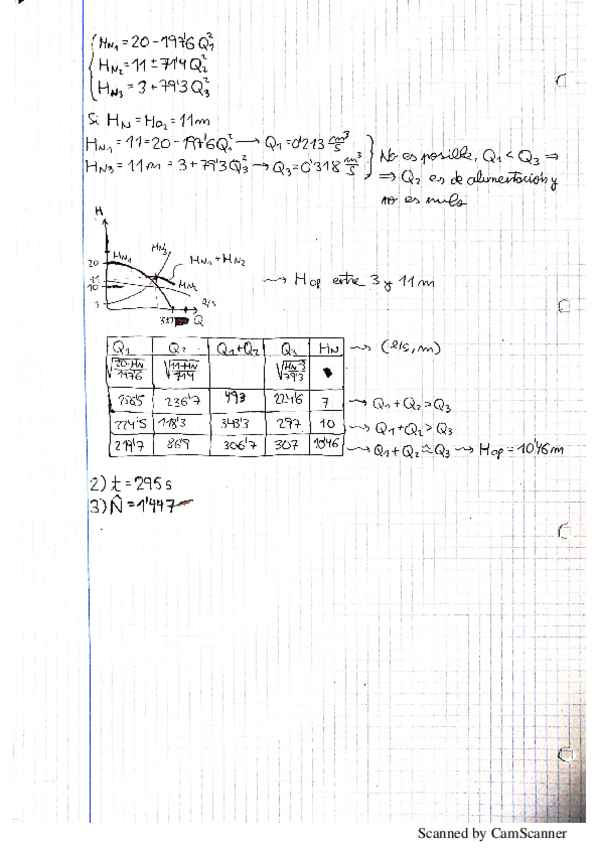 HN₁ = 20 - 197'6 Q₁²
HN₂ = 11 ± 714 Q₂²
HN₃ = 3 + 79'3 Q₃²
Si HN = Ha₂ = 11m
HN₁ = 11 = 20 - 197'6 Q₁² → Q₁ = 0'213 m³/s
HN₃ = 11m = 3 + 79'3 Q₃² → Q₃ = 0'318 m³/s
No es posible, Q₁ < Q₃ ⇒
⇒ Q₂ es de alimentación y
no es nulo
H
HN₁
HN₃
HN₁ + HN₂
HN₂
20
11
10
3
l/s
Q
→ Hop entre 3 y 11 m
Q₁ Q₂ Q₁+Q₂ Q₃ HN → (l/s, m)
√(20-HN/197'6) √(11-HN/714) √(HN-3/79'3)
256'5 236'7 493 224'6 7 → Q₁ + Q₂ > Q₃
224'5 118'3 343'3 297 10 → Q₁ + Q₂ > Q₃
219'7 86'9 306'7 307 10'46 → Q₁ + Q₂ ≈ Q₃ → Hop = 10'46 m
2) t = 295 s
3) N̂ = 1'447
Scanned by CamScanner